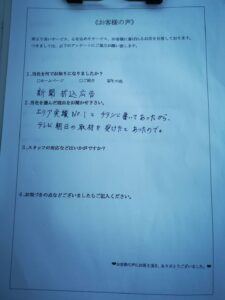 《お客様の声》
1.当社を何でお知りになりましたか？
□ホームページ □ご紹介 □その他
新聞折込広告
2.当社を選んだ理由をお聞かせ下さい。
エリア実績No1とチラシに書いてあったから、
テレビ朝日の取材を受けたとあったので。
3.スタッフの対応などはいかがですか？
4.お気づきの点などございましたらご記入ください。
♥お客様の声にお答え頂き、ありがとうございました。♥